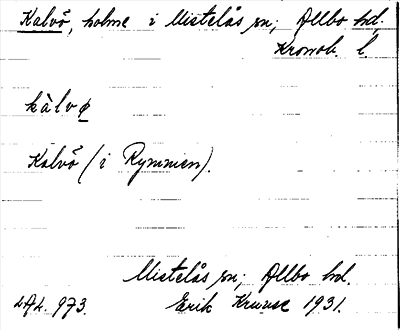 Kalvö, holme i Mistelås sn; Allbo hd.
Kronob. l.
kàlvø
Kalvö (i Rymmen).
Mistelås sn; Allbo hd.
LAL. 973. Erik Kruuse 1931.